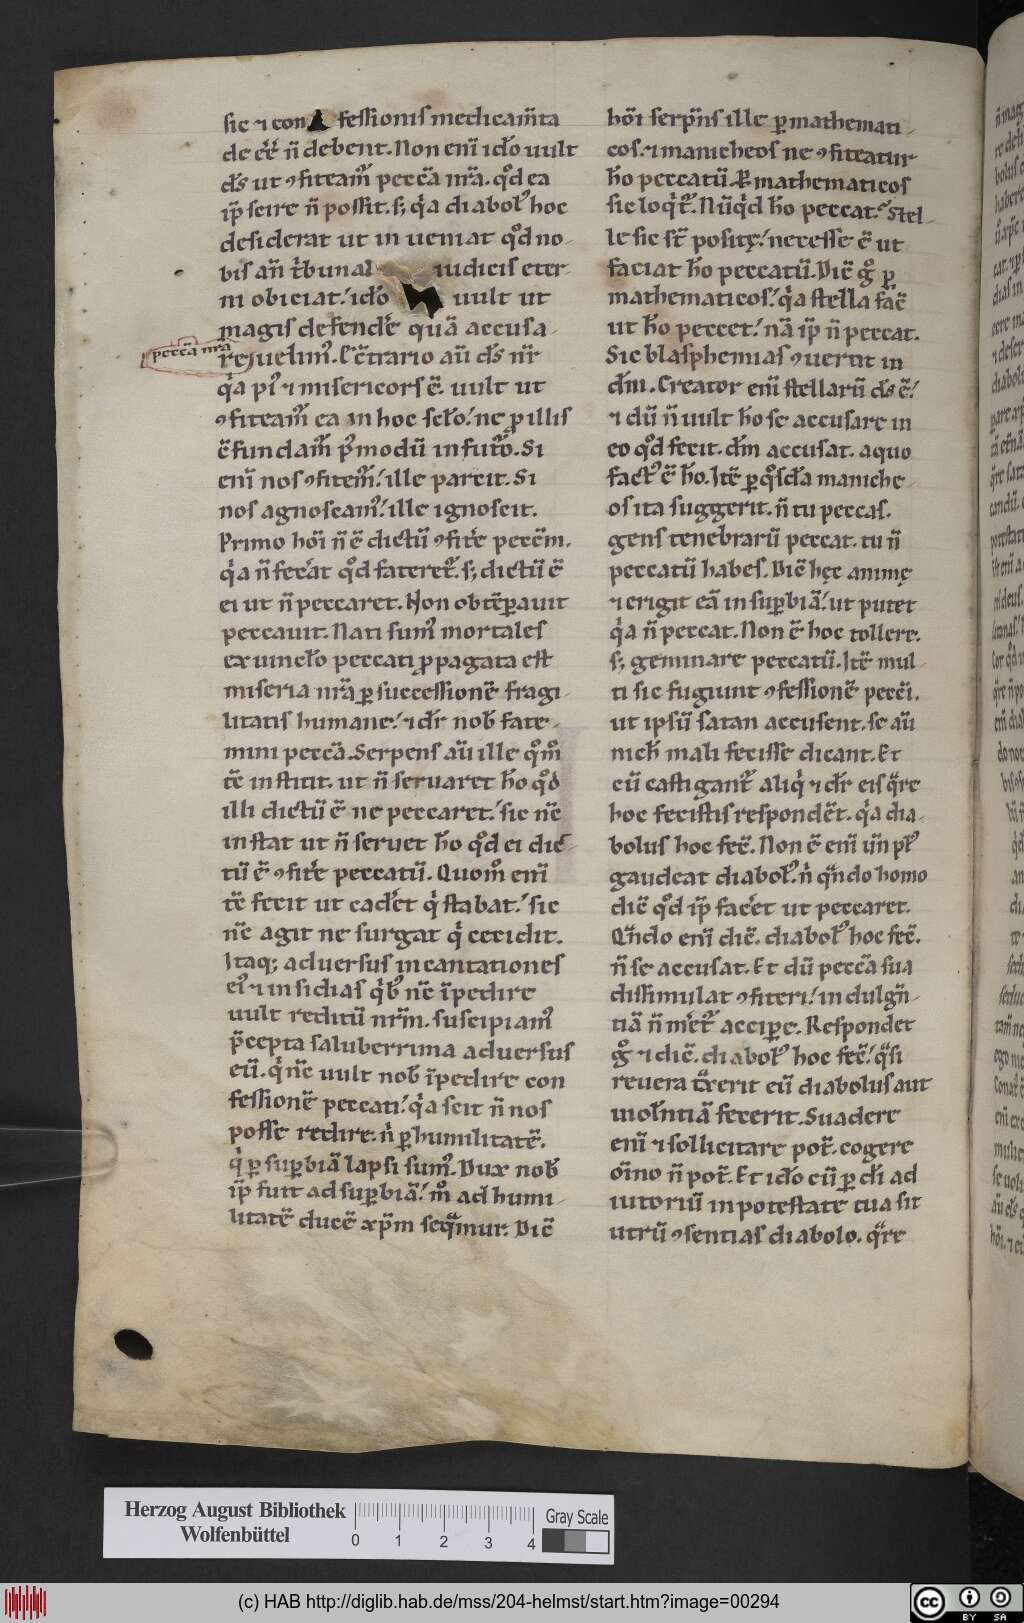 sic ⁊ con fessionis medicam̃ta
de eē͛ ñ debent. Non enĩ iđo uult
d̃s ut ꝯfiteam᷑ peccã nr̃a. qđ ea
ip̃ scire ñ possit. sꝫ q̇a diabolꝰ hoc
desiderat ut in ueniat qđ no-
bis añ ṫbunal iudicis eter-
ni obiciat. iđo uult ut
magis defende͛ quã accusa-
peccã nr̃a
re uelimꝰ. Ec̃trario aũ d̃s nr̃
q̇a piꝰ ⁊ misericors ẽ. uult ut
ꝯfiteam᷑ ea in hoc scl̃o. ne ꝓ illis
ꝯfundam᷑ pꝰmodũ in fut᷑o. Si
enĩ nos ꝯfitem᷑. ille parcit. Si
nos agnoscamꝰ. ille ignoscit.
Primo hõi ñ ẽ dictũ ꝯfite͛ pecc̃m.
q̇a ñ fec͛at qđ fateret᷑. sꝫ dictũ ẽ
ei ut ñ peccaret. Non obtẽꝑauit
peccauit. Nati sumꝰ mortales
ex uincl̃o peccati ꝓpagata est
miseria nr̃a ꝑ successionẽ fragi-
litatis humane. ⁊ dr̃ nob̃ fate-
mini peccã. Serpens aũ ille qᵒmᵒ
tc̃ institit. ut ñ seruaret h̃o qđ
illi dictũ ẽ ne peccaret. sic nc̃
instat ut ñ seruet h̃o qđ ei dic-
tũ ẽ ꝯfite͛ peccatũ. Quomᵒ enĩ
tc̃ fecit ut cad͛et q̇ stabat. sic
nc̃ agit ne surgat q̇ cecidit.
Itaqꝫ aduersus incantationes
eiꝰ ⁊ insidias q̇bꝰ nc̃ ĩpedire
uult reditũ nr̃m. suscipiamꝰ
p̃cepta saluberrima aduersus
eũ. q̇ nc̃ uult nob̃ ĩpedire con
fessionẽ peccati. q̇a scit ñ nos
posse redire. ñ ꝑ humilitatẽ.
q̇ ꝑ suꝑbiã lapsi sumꝰ. Dux nob̃
ip̃ fuit ad suꝑbiã. mᵒ ad humi-
litatẽ ducẽ xp̃m seq̃mur. Dic̃
hõi serp̃ns ille ꝑ mathemati-
cos. ⁊ manicheos ne ꝯfiteatur
h̃o peccatũ. Ꝑ mathematicos
sic loq̇t᷑. Nũq̇d h̃o peccat. Stel-
le sic st̃ positę. necesse ẽ ut
faciat h̃o peccatũ. Dic̃ gᵒ ꝑ
mathematicos. q̇a stella fac̃
ut h̃o peccet. nã ip̃ ñ peccat.
Sic blasphemias ꝯuertit in
dm̃. Creator enĩ stellarũ d̃s ẽ.
⁊ dũ ñ uult h̃o se accusare in
eo qđ fecit. dm̃ accusat. a quo
factꝰ ẽ h̃o. Itẽ ꝑ qᵒsda͛ maniche-
os ita suggerit. ñ tu peccas.
gens tenebrarũ peccat. tu ñ
peccatũ habes. Dic̃ hęc animę
⁊ erigit eã in suꝑbiã. ut putet
q̇a ñ peccat. Non ẽ hoc tollere.
sꝫ geminare peccatũ. Itẽ mul-
ti sic fugiunt ꝯfessionẽ pecc̃i.
ut ipsũ satan accusent. se aũ
nich̃ mali fecisse dicant. Et
cũ castigant᷑ aliq̇ ⁊ dr̃ eis qͣre
hoc fecistis respondẽt. q̇a dia-
bolus hoc fec̃. Non ẽ enĩ uñ plꝰ
gaudeat diabolꝰ. ñ qͣndo homo
dic̃ qđ ip̃ fac͛et ut peccaret.
Qͣndo enĩ dic̃. diabolꝰ hoc fec̃.
ñ se accusat. Et dũ peccã sua
dissimulat ꝯfiteri. indulgñ-
tiã ñ m͛et᷑ acciꝑe. Respondet
gᵒ ⁊ dic̃. diabolꝰ hoc fec̃. qͣsi
reuera t̃xerit eũ diabolus aut
uiol̃ntiã fecerit. Suadere
enĩ ⁊ sollicitare pot̃. cogere
oĩno ñ pot̃. Et iđo cũ ꝑ di̇ ad
iutoriũ in potestate tua sit
utrũ ꝯsentias diabolo. qͣre
Herzog August Bibliothek
Wolfenbüttel
0 1 2 3 4
Gray Scale
(c) HAB http://diglib.hab.de/mss/204-helmst/start.htm?image=00294
cc BY SA